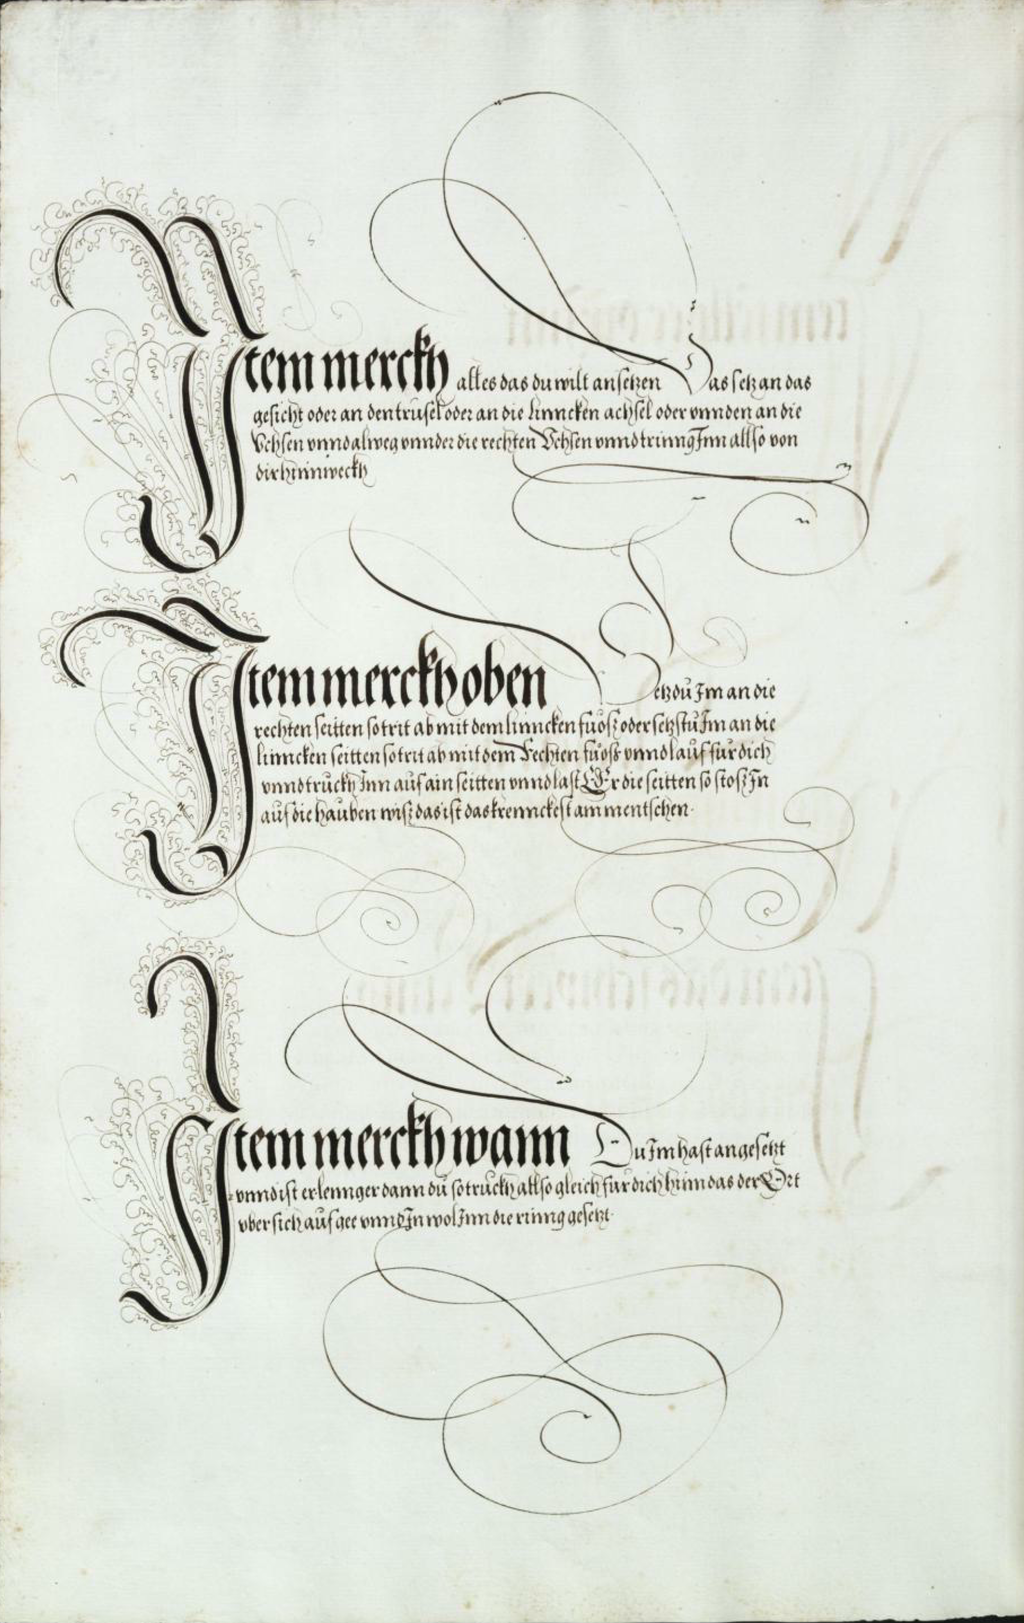 Item merckh alles das du wilt ansetzen Das setz an das
gesicht oder an den trüsel oder an die linncken achsel oder vnnden an die
Vchsen vnnd alweg vnnder die rechten Vchsen vnnd trinng Inn allso von
dir hinnweckh
Item merckh oben Setz dü Im an die
rechten seitten so trit ab mit dem linncken füosz oder setzstü Im an die
linncken seitten so trit ab mit dem Rechten füosz vnnd lauf für dich
vnnd truckh Inn auf ain seitten vnnd last Er die seitten so stosz In
auf die hauben wisz das ist das krennckest am menntschen.
Item merckh wann Du Im hast angesetzt
vnnd ist er lennger dann dü so truckh allso gleich für dich hinn das der Ort
vber sich auf gee vnnd In wol Inn die rinng gesetzt.